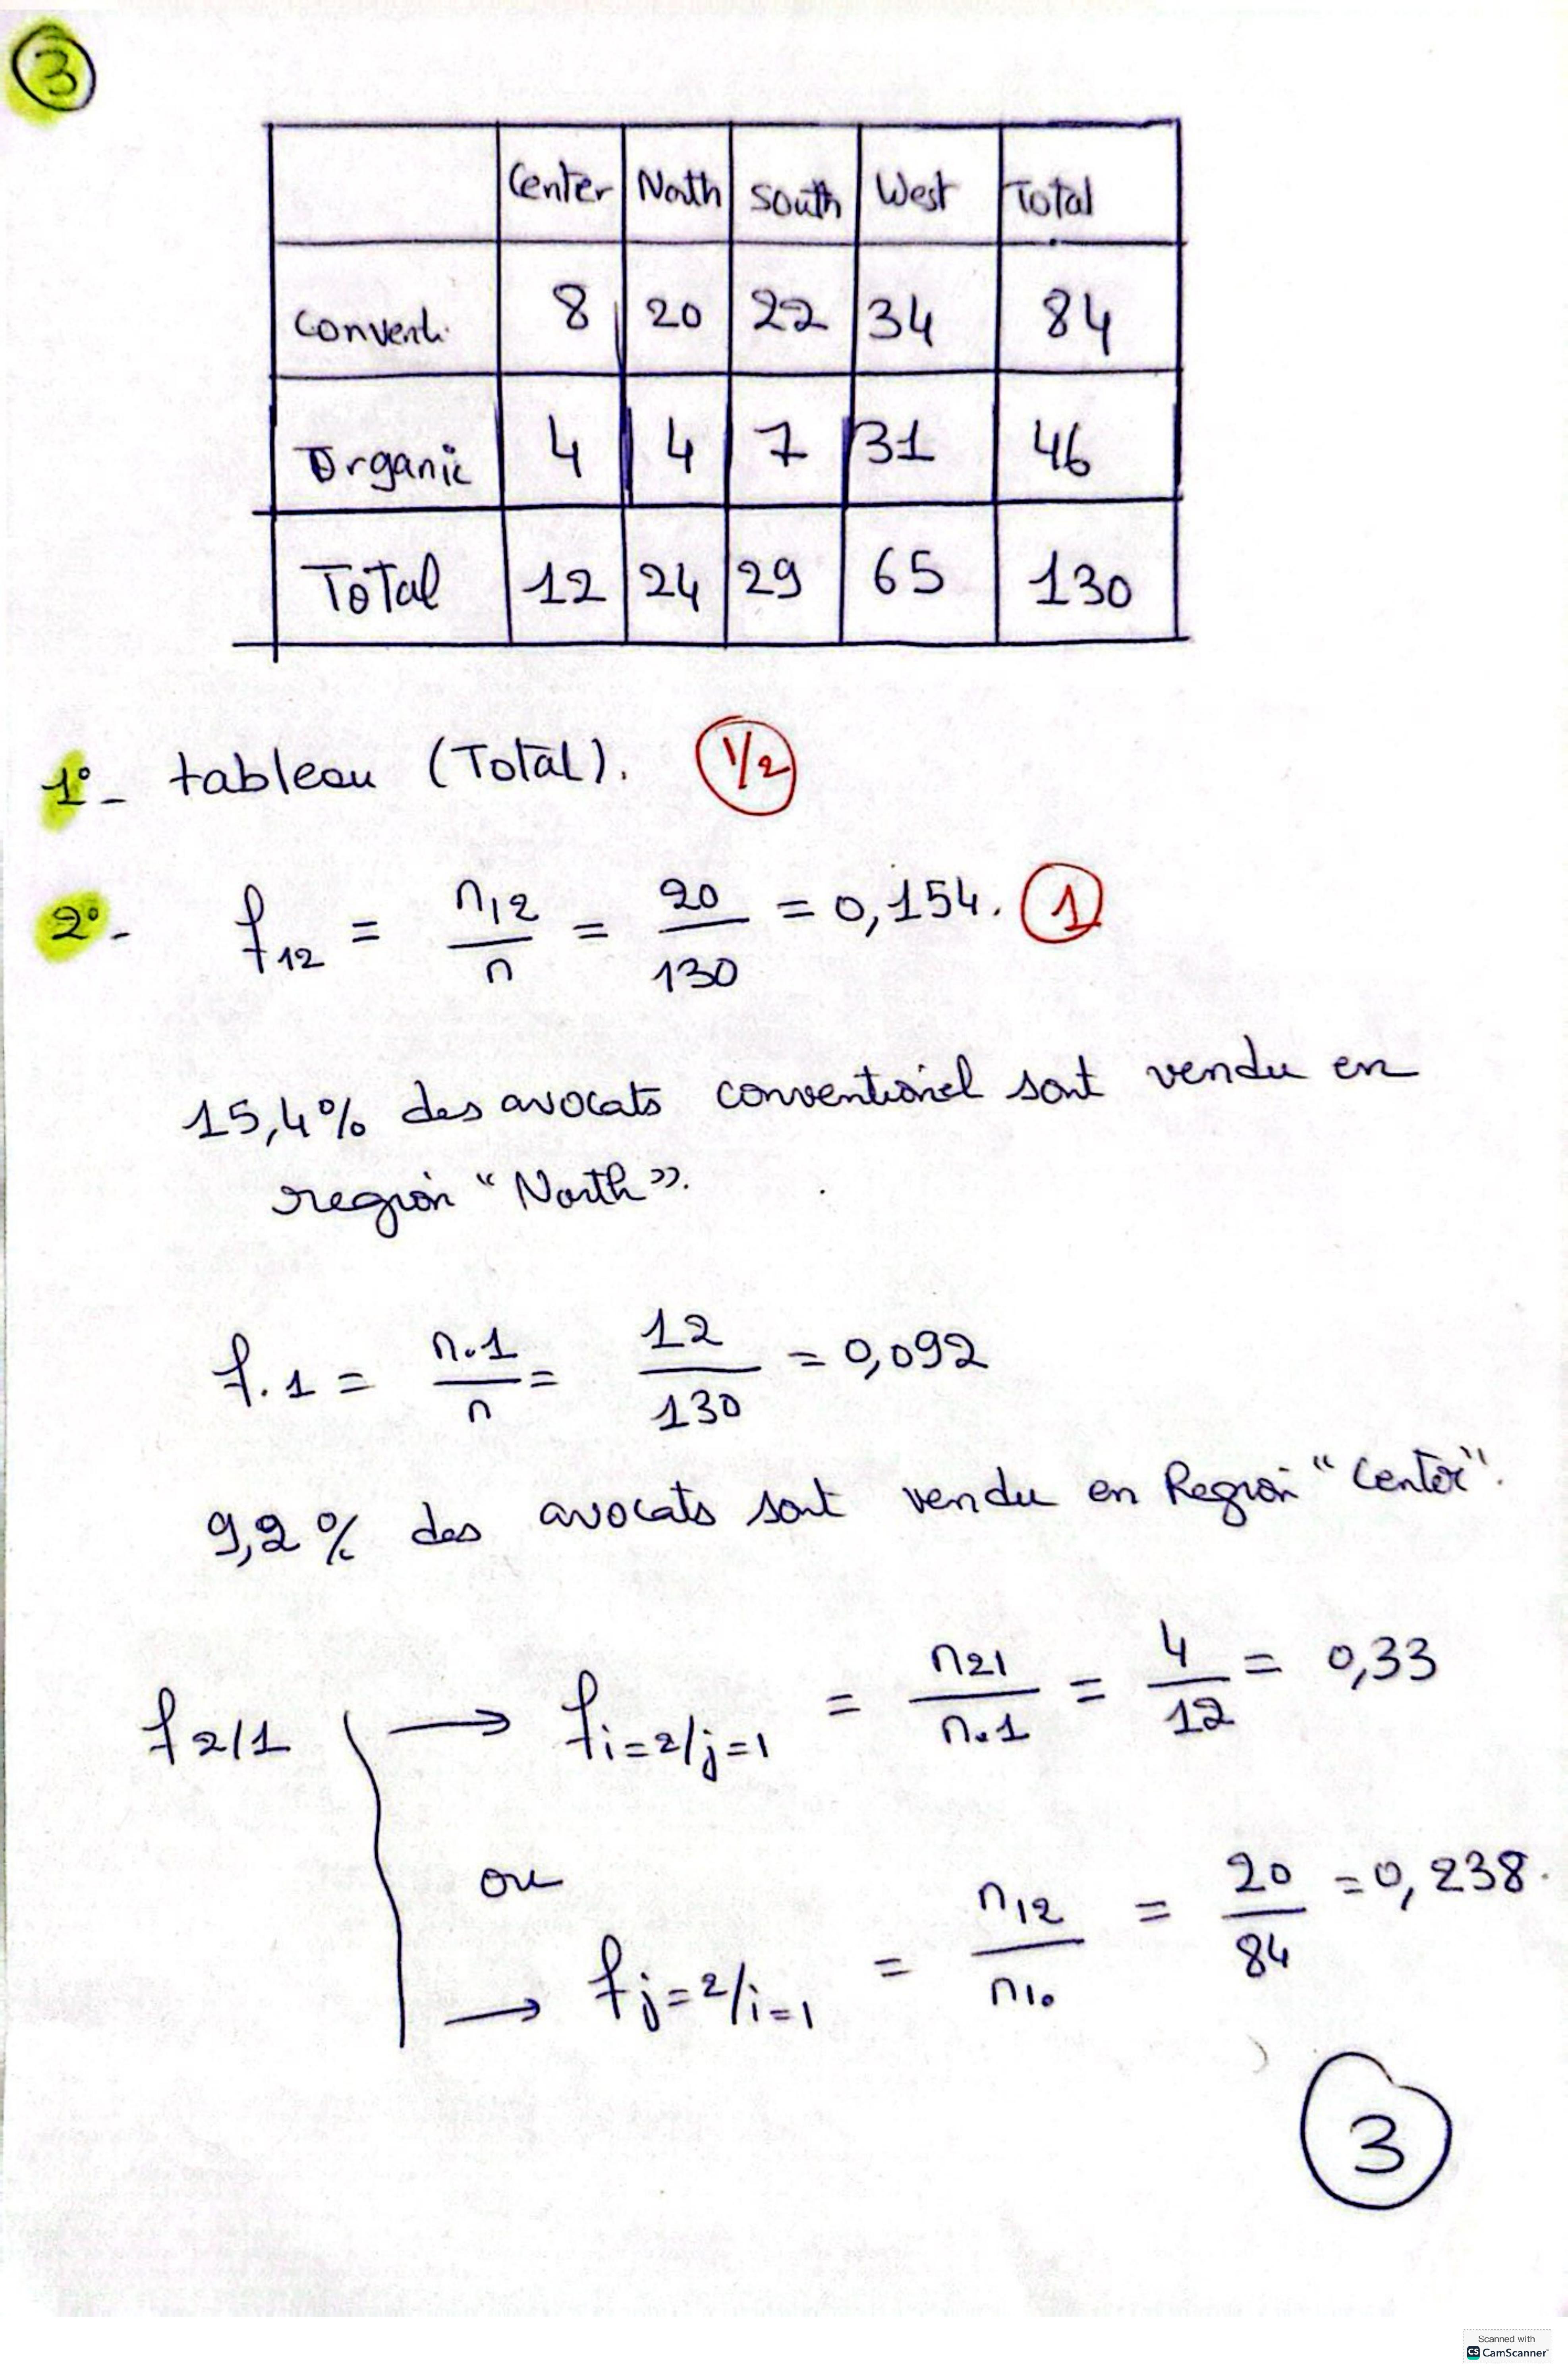 3
Center North South West Total
Conventi. 8 20 22 34 84
Organic 4 4 7 31 46
Total 12 24 29 65 130
1°- tableau (Total). 1/2
2°- f12 = n12/n = 20/130 = 0,154. 1
15,4% des avocats conventionel sont vendu en
region "North".
f.1 = n.1/n = 12/130 = 0,092
9,2% des avocats sont vendu en Region "Center".
f2/1 → fi=2/j=1 = n21/n.1 = 4/12 = 0,33
ou
→ fj=2/i=1 = n12/n1. = 20/84 = 0,238.
3
Scanned with
CS CamScanner